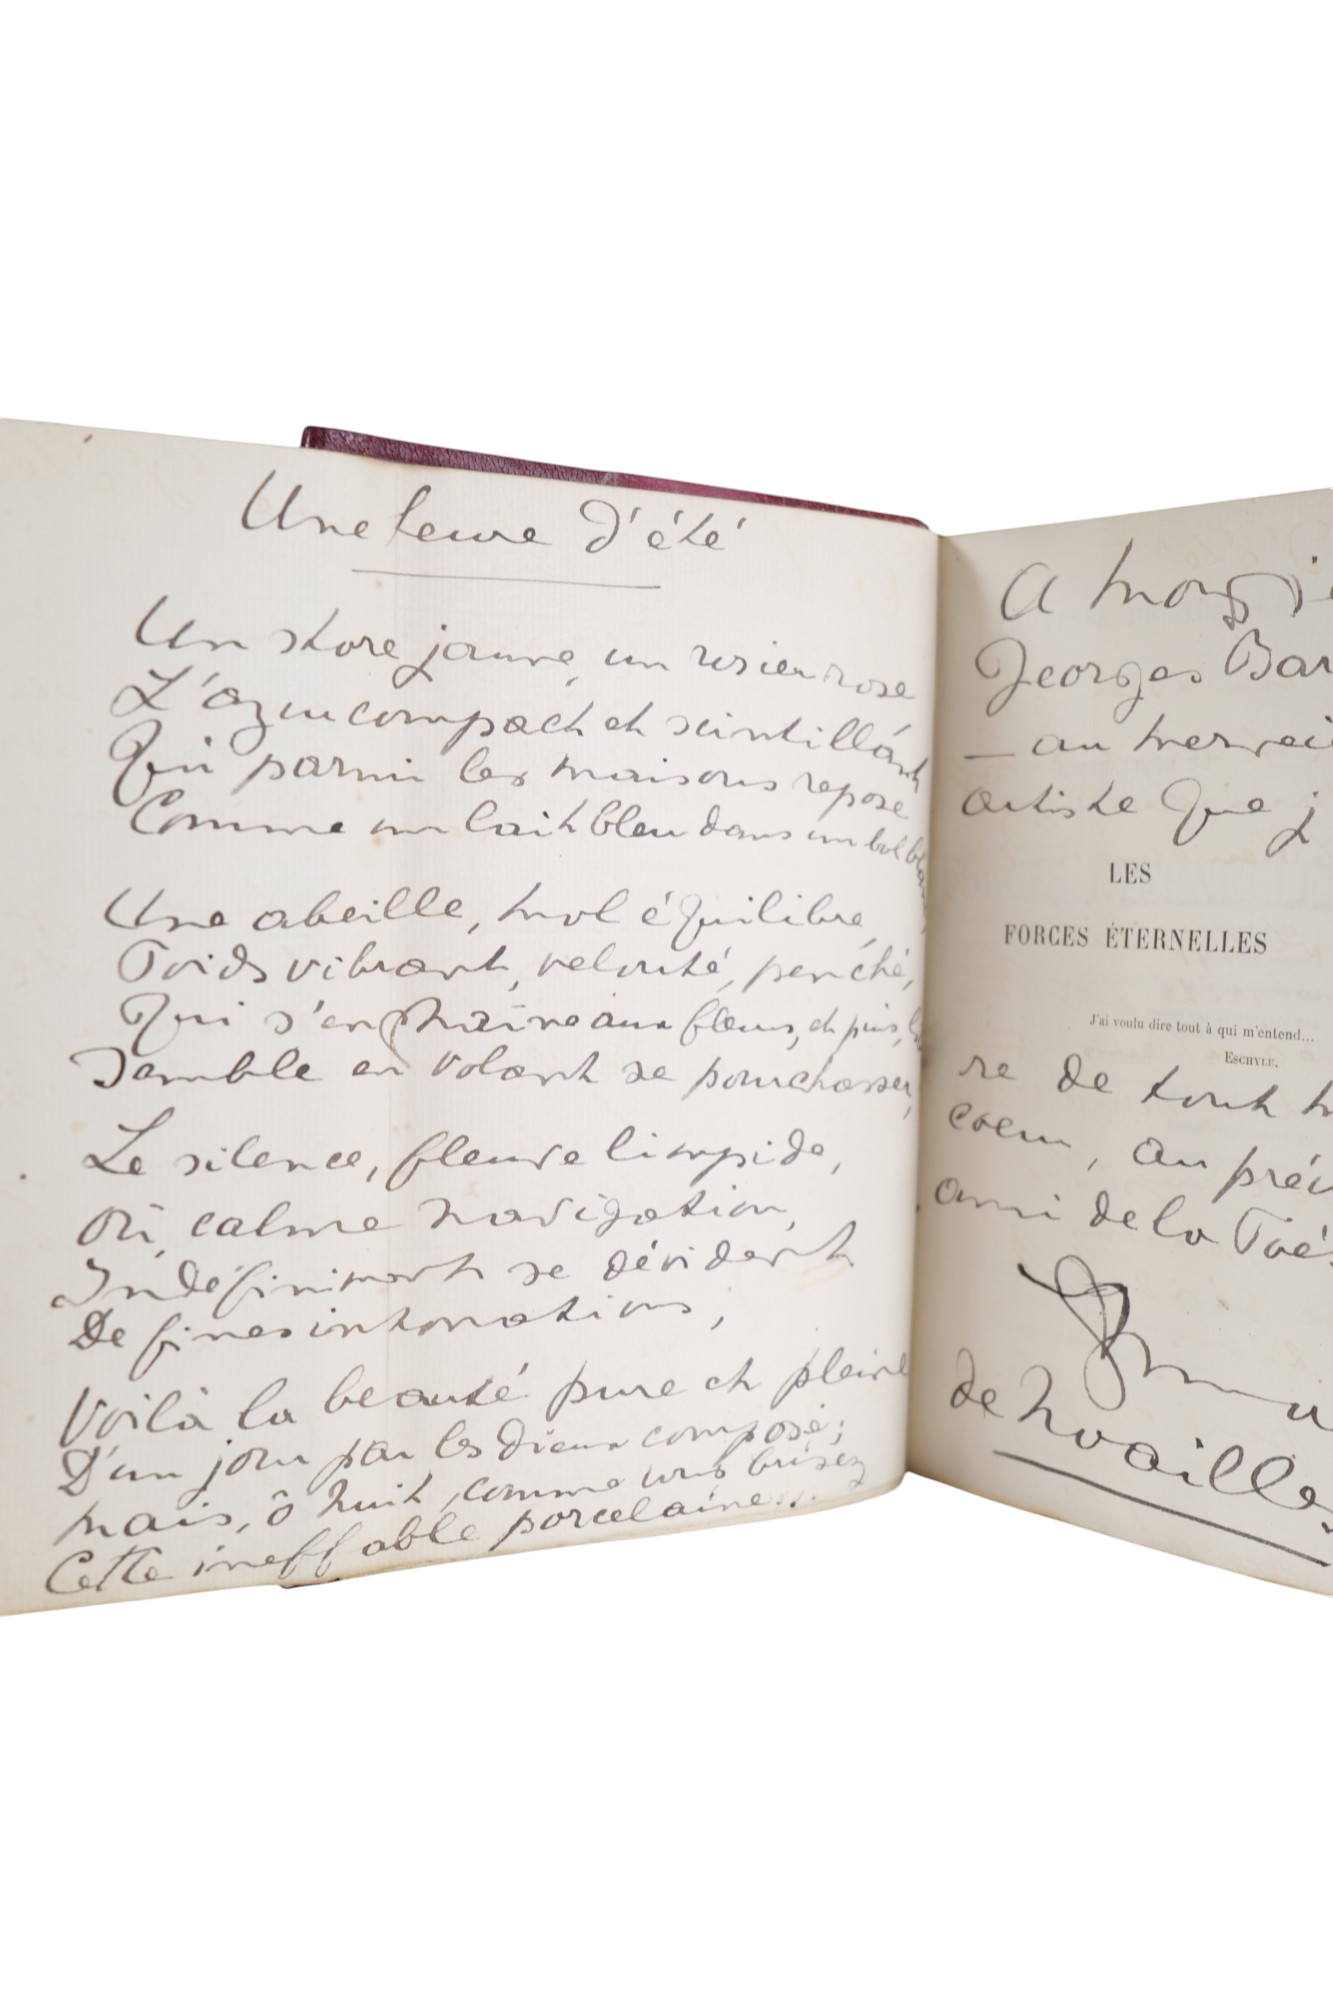 Une heure d'été
Un store jaune, un rosier rose
L'azur compact et scintillant
Qui parmi les maisons repose
Comme un lait bleu dans un bol blanc,
Une abeille, mol équilibre,
Poids vibrant, velouté, penché,
Qui s'enchaîne aux fleurs, et puis,
Semble en volant se pourchasser,
Le silence, fleuve limpide,
Où, calme navigation,
Indéfiniment se dévident
De fines intonations,
Voilà la beauté pure et pleine
D'un jour par les dieux composé;
mais, ô nuit, comme vous brisez
Cette ineffable porcelaine...
A Monsie
Georges Bar
— au mervei
artiste que j
LES
FORCES ÉTERNELLES
J'ai voulu dire tout à qui m'entend...
ESCHYLE.
re de tout m
coeur, au préci
ami de la Poés
de Noailles